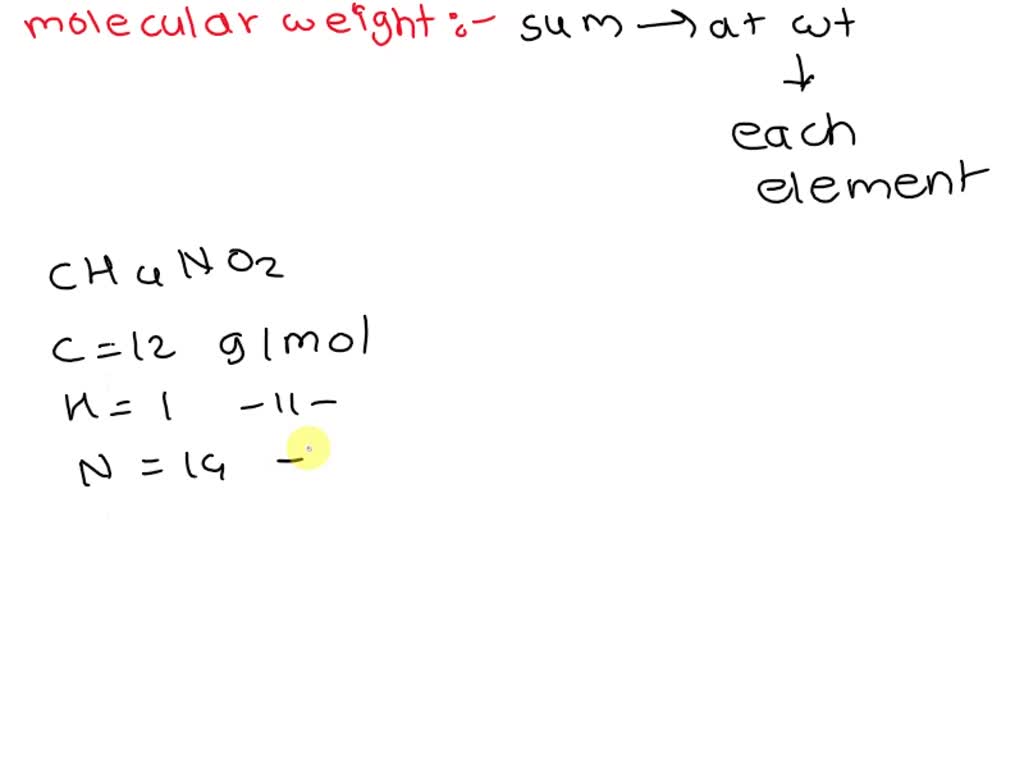 molecular weight :- sum → at wt
↓
each
element
CH4NO2
C = 12 g/mol
H = 1 -11-
N = 14 -